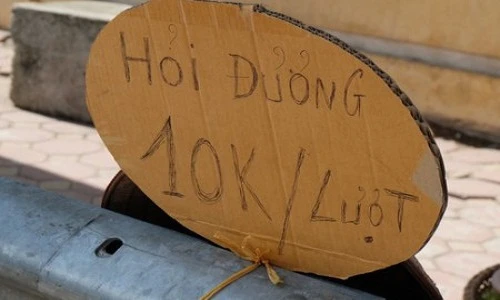 HỎI ĐƯỞNG
10K/LƯỢT